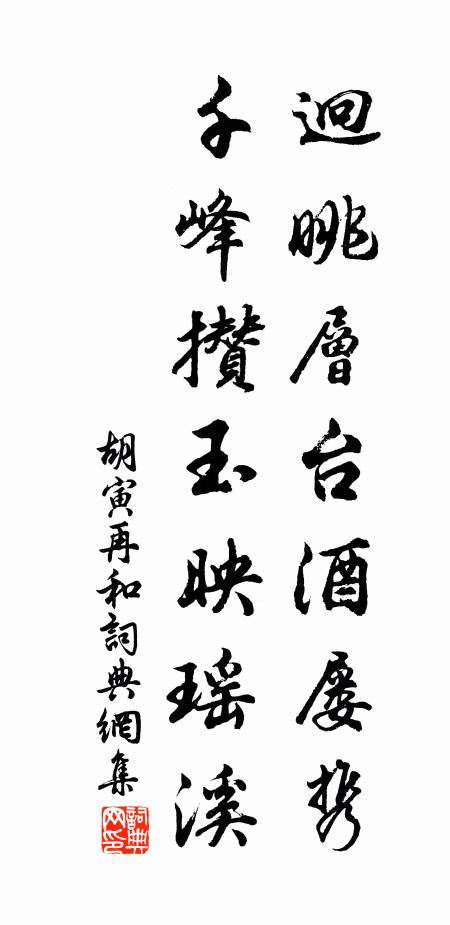 迴眺層台酒屡携
千峰攅玉映瑶溪
胡寅再和詞典網集
詞典網印